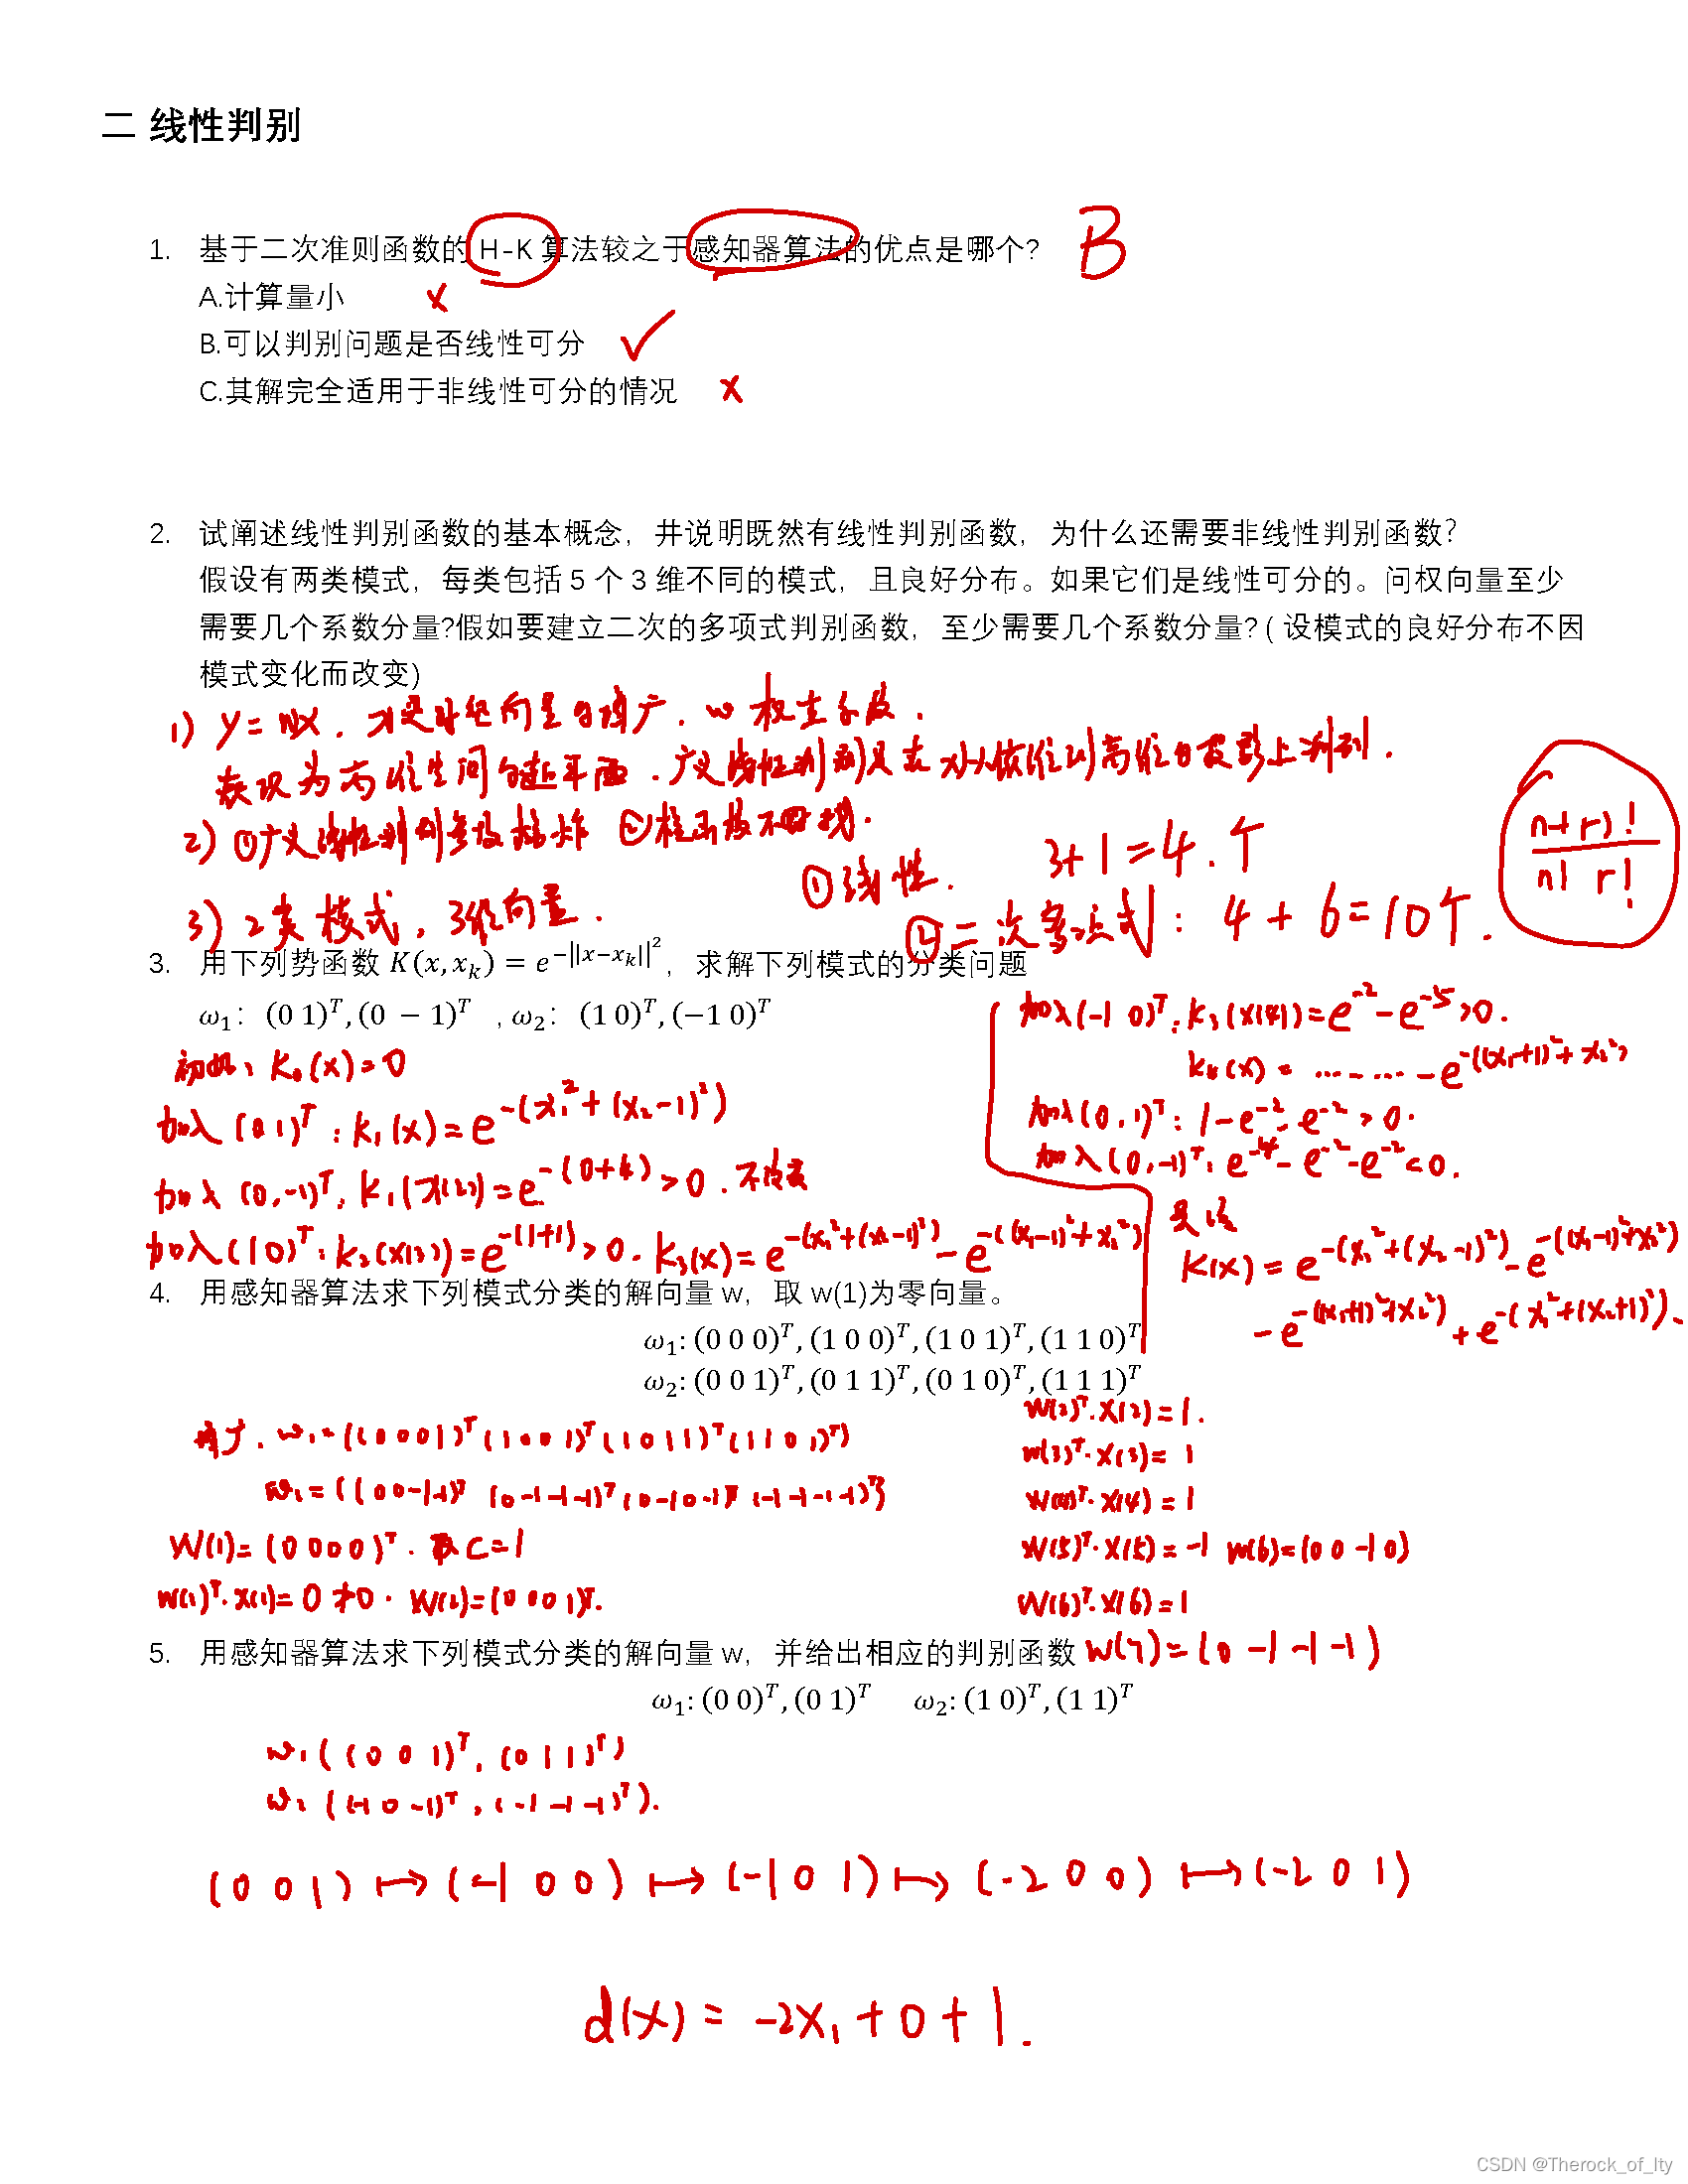 二 线性判别
1. 基于二次准则函数的 H-K 算法较之于感知器算法的优点是哪个? B
A.计算量小 ×
B.可以判别问题是否线性可分 ✓
C.其解完全适用于非线性可分的情况 ×
2. 试阐述线性判别函数的基本概念，井说明既然有线性判别函数，为什么还需要非线性判别函数?
假设有两类模式，每类包括 5 个 3 维不同的模式，且良好分布。如果它们是线性可分的。问权向量至少
需要几个系数分量?假如要建立二次的多项式判别函数，至少需要几个系数分量? ( 设模式的良好分布不因
模式变化而改变)
1) y = wx . 增广 . w
表现为高维空间的超平面 . 广义线性判别是在 低维到高维的投影上判别 .
2) ①广义线性判别 ②核函数不好找.
n+r)! / n! r!
3) 2类模式，3维向量 . ①线性 . 3+1=4.个
②二次多项式: 4+6=10个.
3. 用下列势函数 K(x, x_k) = e^{-||x-x_k||^2}，求解下列模式的分类问题
ω1: (0 1)^T, (0 − 1)^T , ω2: (1 0)^T, (−1 0)^T
初始: K0(x)=0
加入(0 1)^T: K1(x)=e^{-(x1^2+(x2-1)^2)}
加入(0,-1)^T: K1(x(2))=e^{-(0+4)}>0.
加入(1 0)^T: K2(x(3))=e^{-(1+1)}>0. K3(x)=e^{-(x1^2+(x2-1)^2)}-e^{-((x1-1)^2+x2^2)}
加入(-1 0)^T: K3(x(4))=e^{-2}-e^{-5}>0.
K4(x)= ……-e^{-((x1+1)^2+x2^2)}
加入(0,1)^T: 1-e^{-2}-e^{-2}>0.
加入(0,-1)^T: e^{-4}-e^{-2}-e^{-2}<0.
K(x)=e^{-(x1^2+(x2-1)^2)}-e^{-((x1-1)^2+x2^2)}
-e^{-((x1+1)^2+x2^2)}+e^{-(x1^2+(x2+1)^2)}.
4. 用感知器算法求下列模式分类的解向量 w，取 w(1)为零向量。
ω1: (0 0 0)^T, (1 0 0)^T, (1 0 1)^T, (1 1 0)^T
ω2: (0 0 1)^T, (0 1 1)^T, (0 1 0)^T, (1 1 1)^T
增广. w1=((0 0 0 1)^T (1 0 0 1)^T (1 0 1 1)^T (1 1 0 1)^T)
w2=((0 0 -1 -1)^T (0 -1 -1 -1)^T (0 -1 0 -1)^T (-1 -1 -1 -1)^T)
W(1)=(0 0 0 0)^T. 取 C=1
W(1)^T·X(1)=0 ≯0. W(2)=(0 0 0 1)^T.
W(2)^T·X(2)=1.
W(3)^T·X(3)=1
W(4)^T·X(4)=1
W(5)^T·X(5)=-1 W(6)=(0 0 -1 0)
W(6)^T·X(6)=1
5. 用感知器算法求下列模式分类的解向量 w，并给出相应的判别函数 W(7)=(0 -1 -1 -1)
ω1: (0 0)^T, (0 1)^T ω2: (1 0)^T, (1 1)^T
w1((0 0 1)^T, (0 1 1)^T)
w2((-1 0 -1)^T, (-1 -1 -1)^T).
(0 0 1) ↦ (-1 0 0) ↦ (-1 0 1) ↦ (-2 0 0) ↦ (-2 0 1)
d(x) = -2x1 + 0 + 1.
CSDN @Therock_of_lty